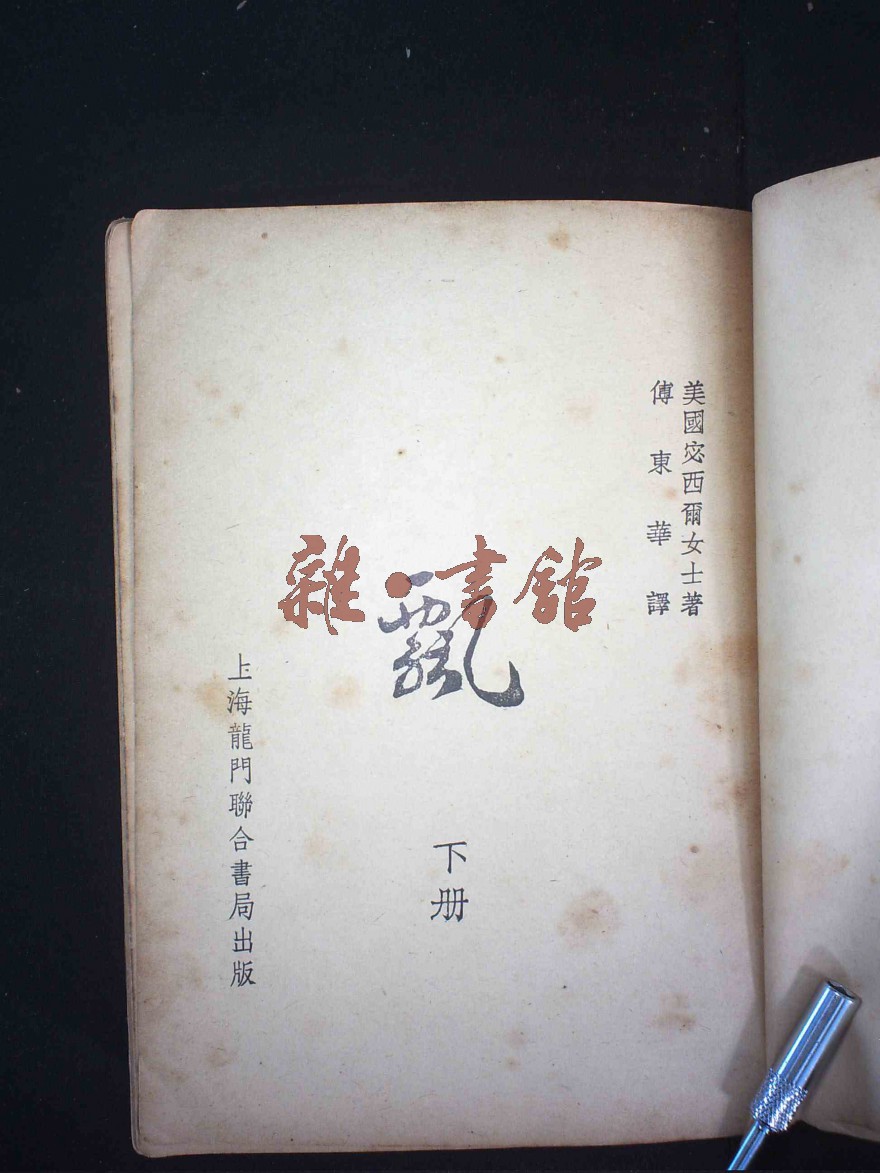 美國宓西爾女士著
傅東華譯
飄
下册
上海龍門聯合書局出版
雜·書館